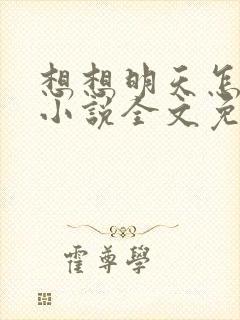 想想明天怎
小说全文免
霍尊學